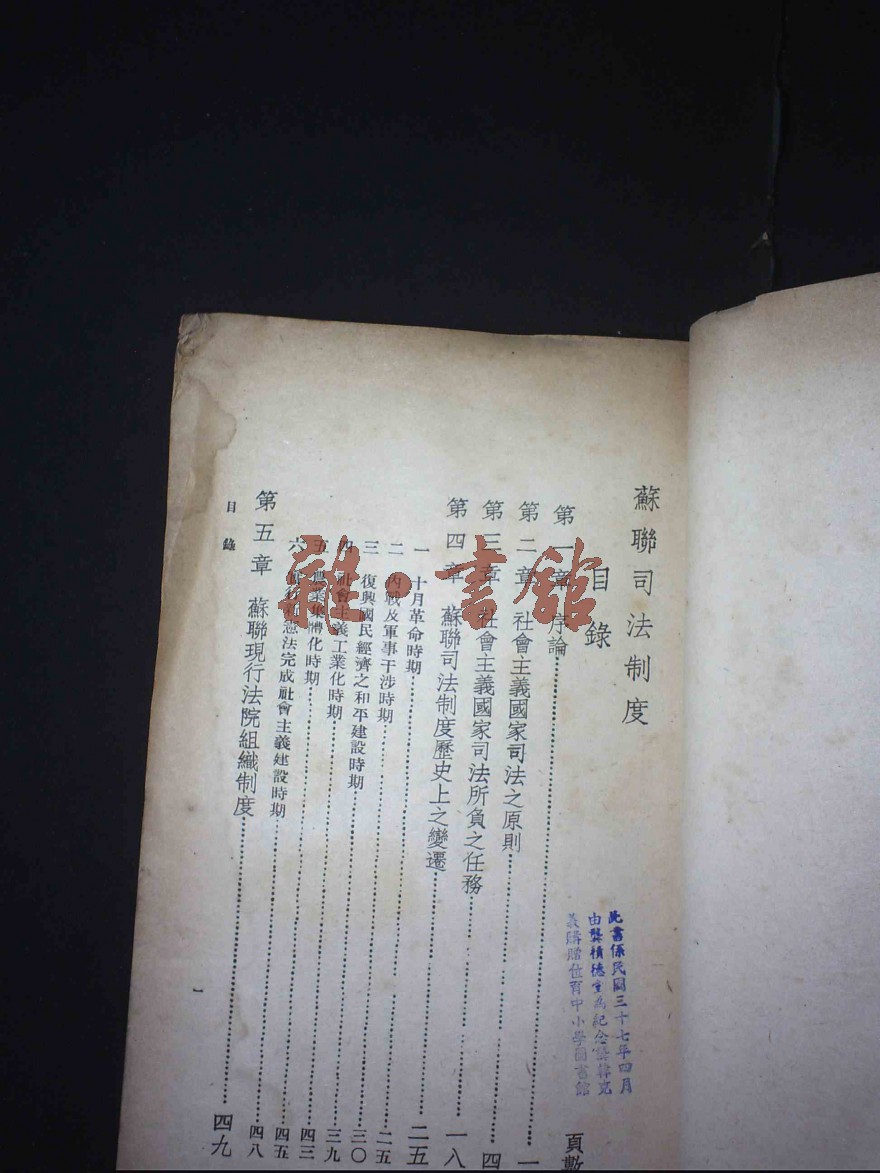 蘇聯司法制度
目錄
頁數
第一章 序論……一
第二章 社會主義國家司法之原則……四
第三章 社會主義國家司法所負之任務……一八
第四章 蘇聯司法制度歷史上之變遷……二五
一 十月革命時期……二五
二 內戰及軍事干涉時期……三〇
三 復興國民經濟之和平建設時期……三九
四 社會主義工業化時期……四三
五 農業集體化時期……四五
六 新憲法完成社會主義建設時期……四八
第五章 蘇聯現行法院組織制度……四九
目錄
一
此書係民國三十七年四月
由龔積德堂為紀念
義購贈位育中小學圖書館
雜·書館